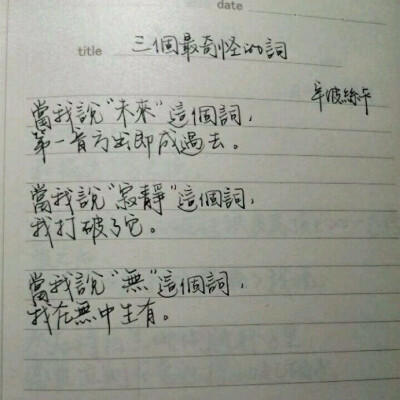 date
title 三個最奇怪的詞
辛波絲卡
當我說"未來"這個詞，
第一音方出即成過去。
當我說"寂靜"這個詞，
我打破了它。
當我說"無"這個詞，
我在無中生有。